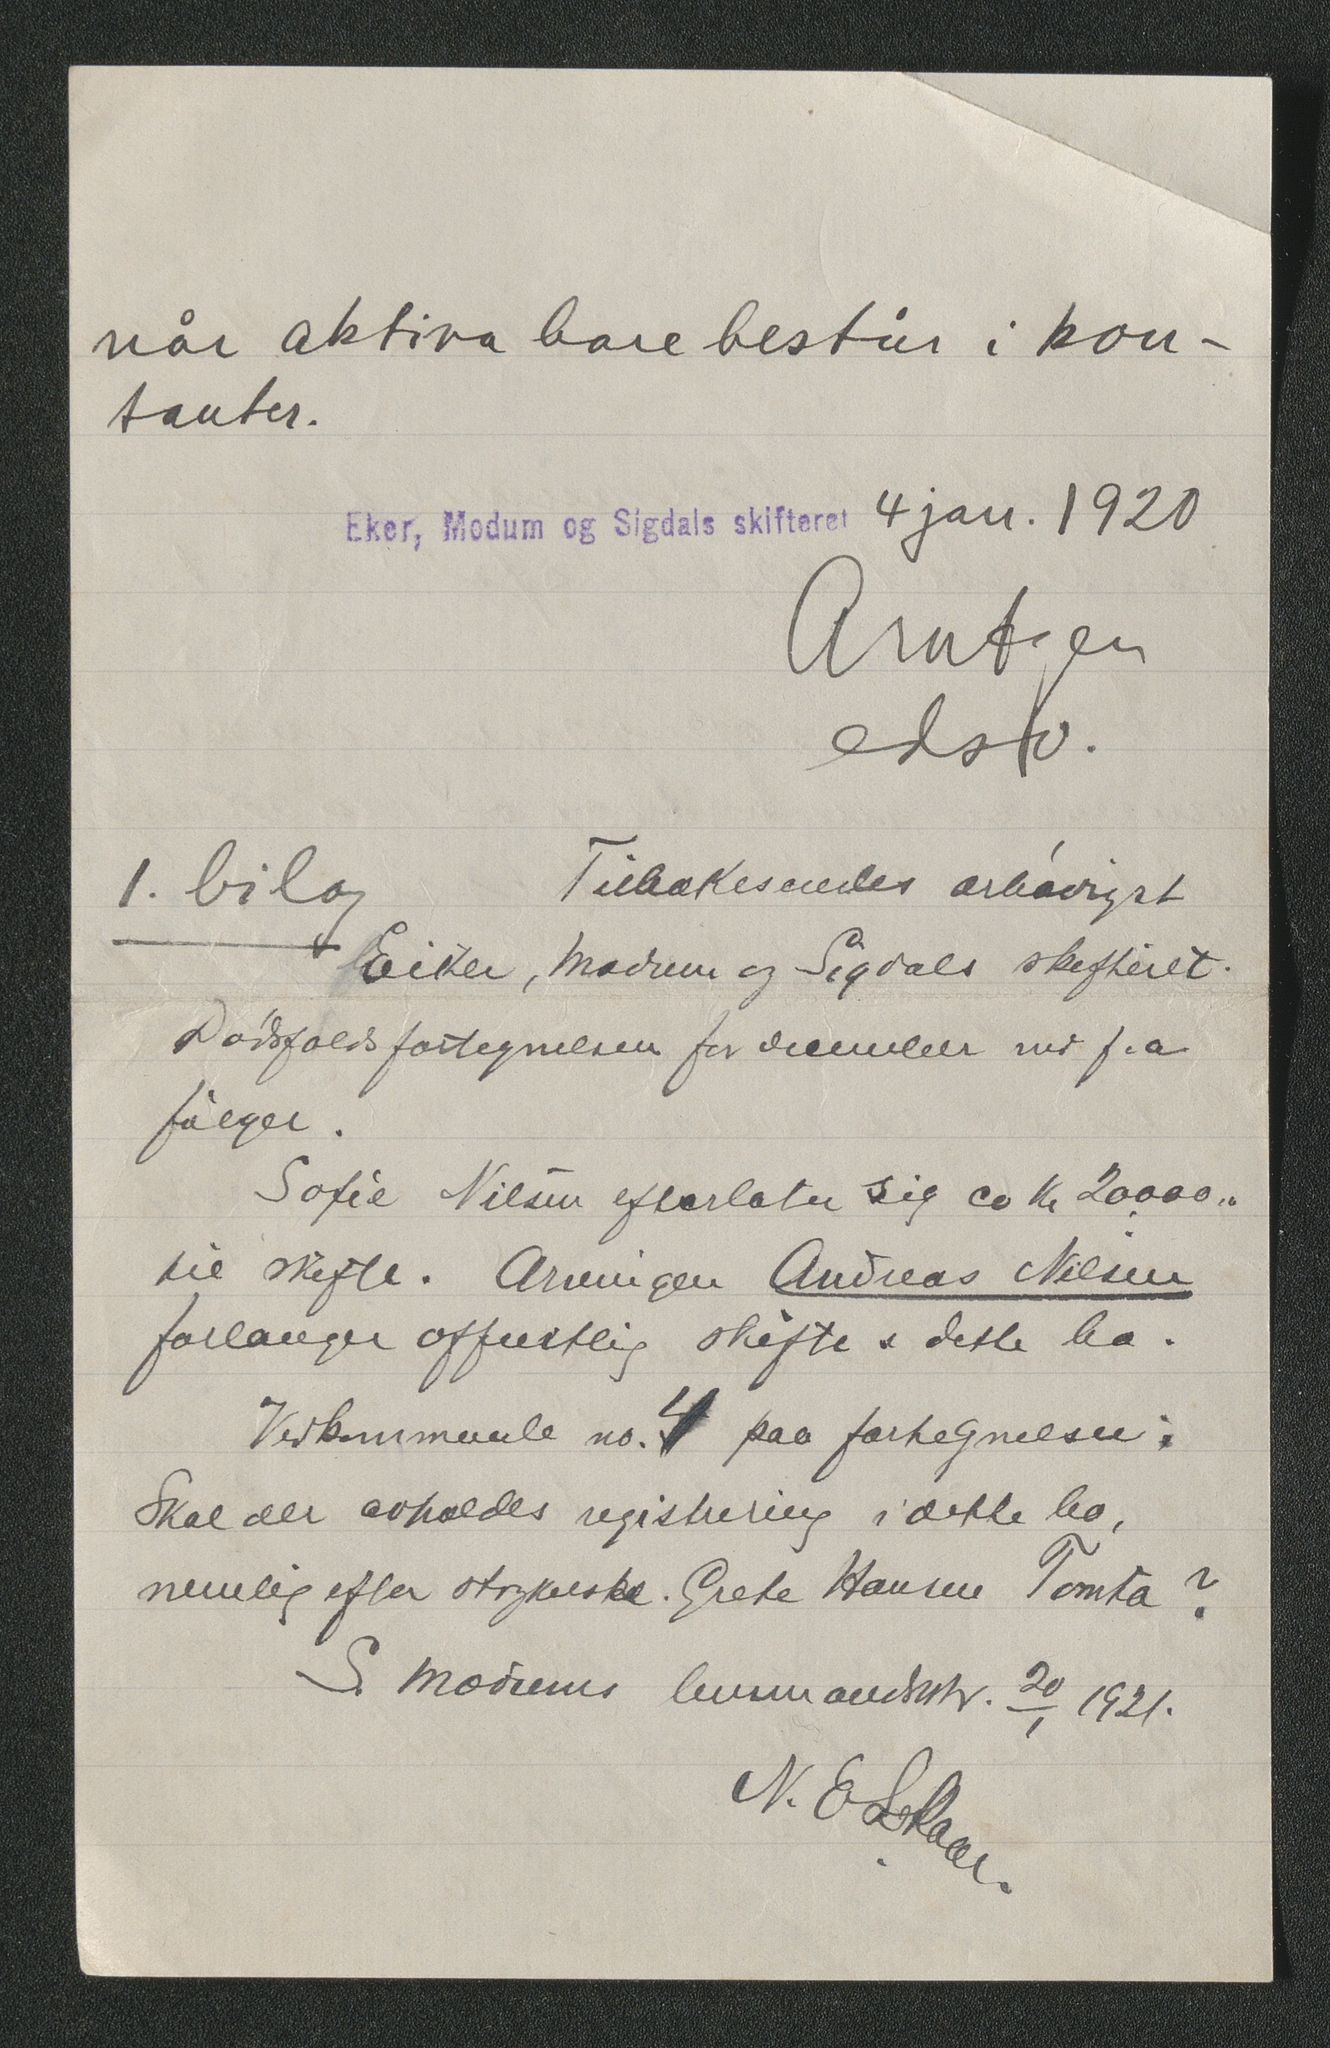 når aktiva bare består i kon-
tanter.
Eker, Modum og Sigdals skifteret 4 jan. 1920
Arntzen
edsv.
1. bilag Tilbakesendes ærbödigst
Eiker, Modum og Sigdals skifteret.
Dödsfaldsfortegnelsen for desember md f.a
fölger.
Sofie Nilsen efterlater sig ca kr 20,000..
til skifte. Arvingen Andreas Nilsen
forlanger offentlig skifte i dette bo.
Vedkommende no. 4 paa fortegnelsen:
Skal der avholdes registrering i dette bo,
nemlig efter strykerske. Grete Hansen Tomta?
S. Modums lensmandsktr. 20/1 1921.
N. E Skaar.